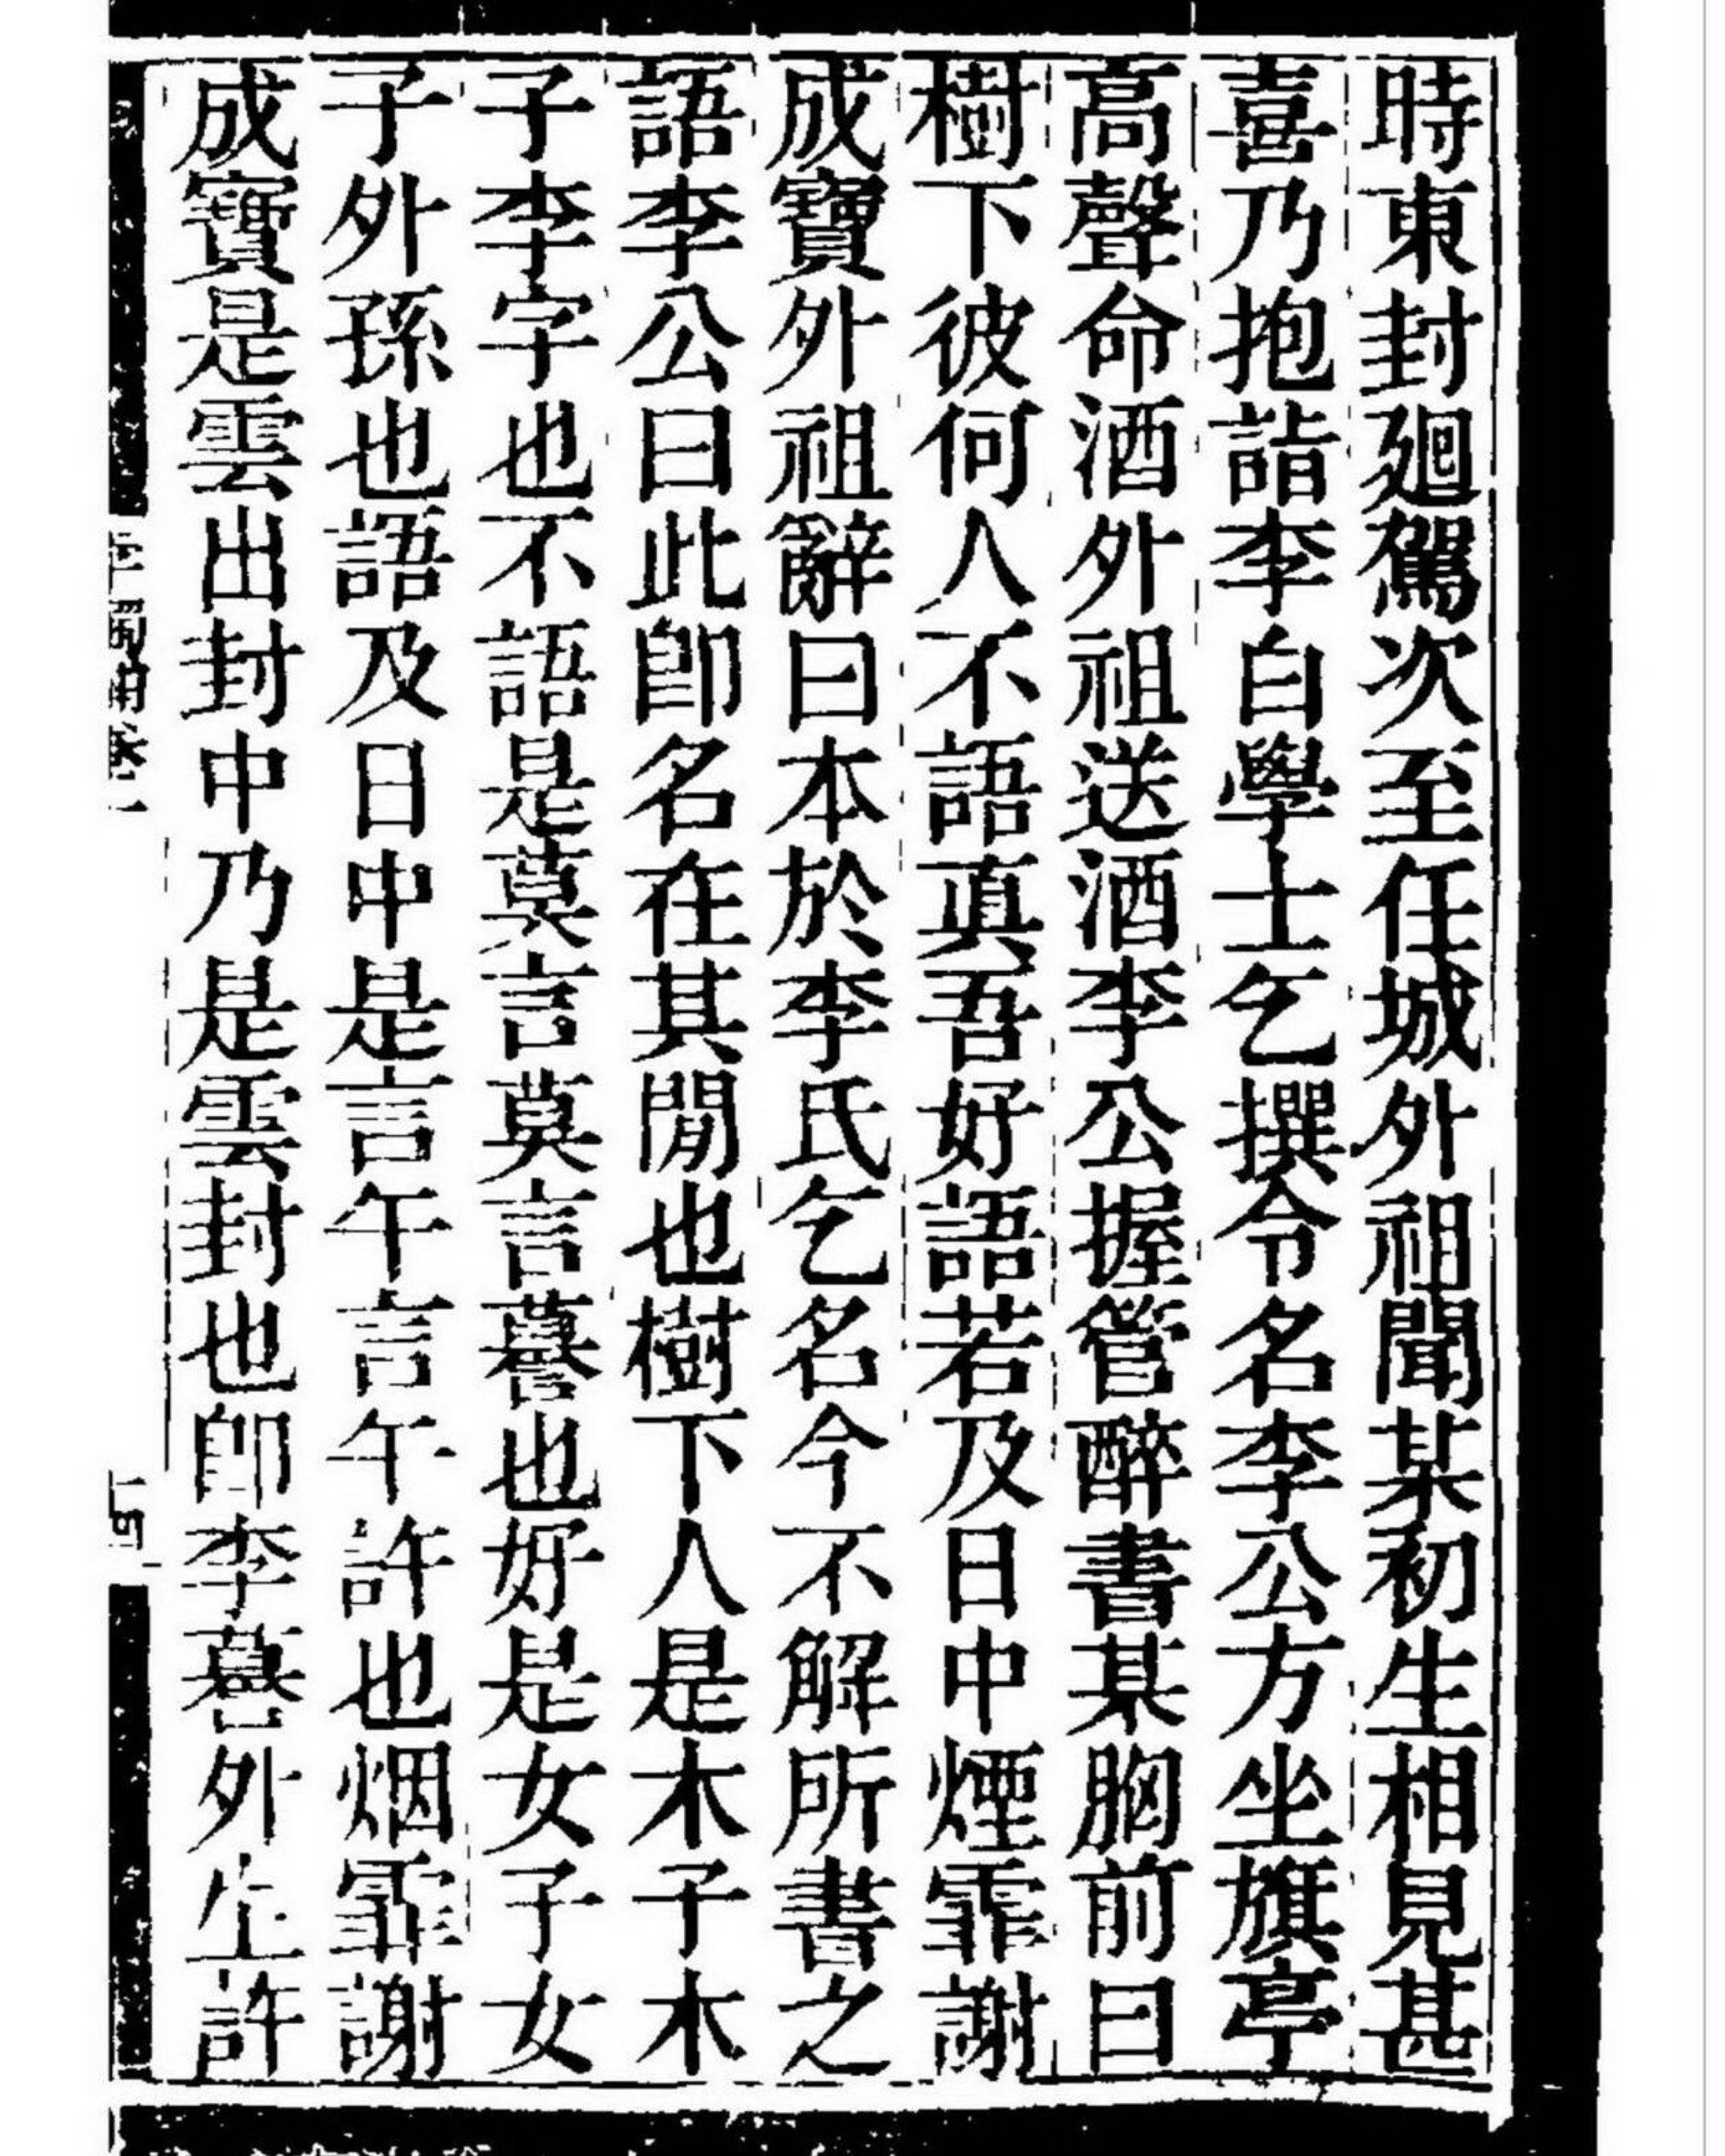 時東封廻駕次至任城外祖聞某初生相見甚
喜乃抱詣李白學士乞撰令名李公方坐旗亭
高聲命酒外祖送酒李公握管醉書某胸前曰
樹下彼何人不語真吾好語若及日中煙霏謝
成寶外祖辭曰本於李氏乞名今不解所書之
語李公曰此卽名在其閒也樹下人是木子木
子李字也不語是莫言莫言謩也好是女子女
子外孫也語及日中是言午言午許也烟霏謝
成寶是雲出封中乃是雲封也卽李謩外生許